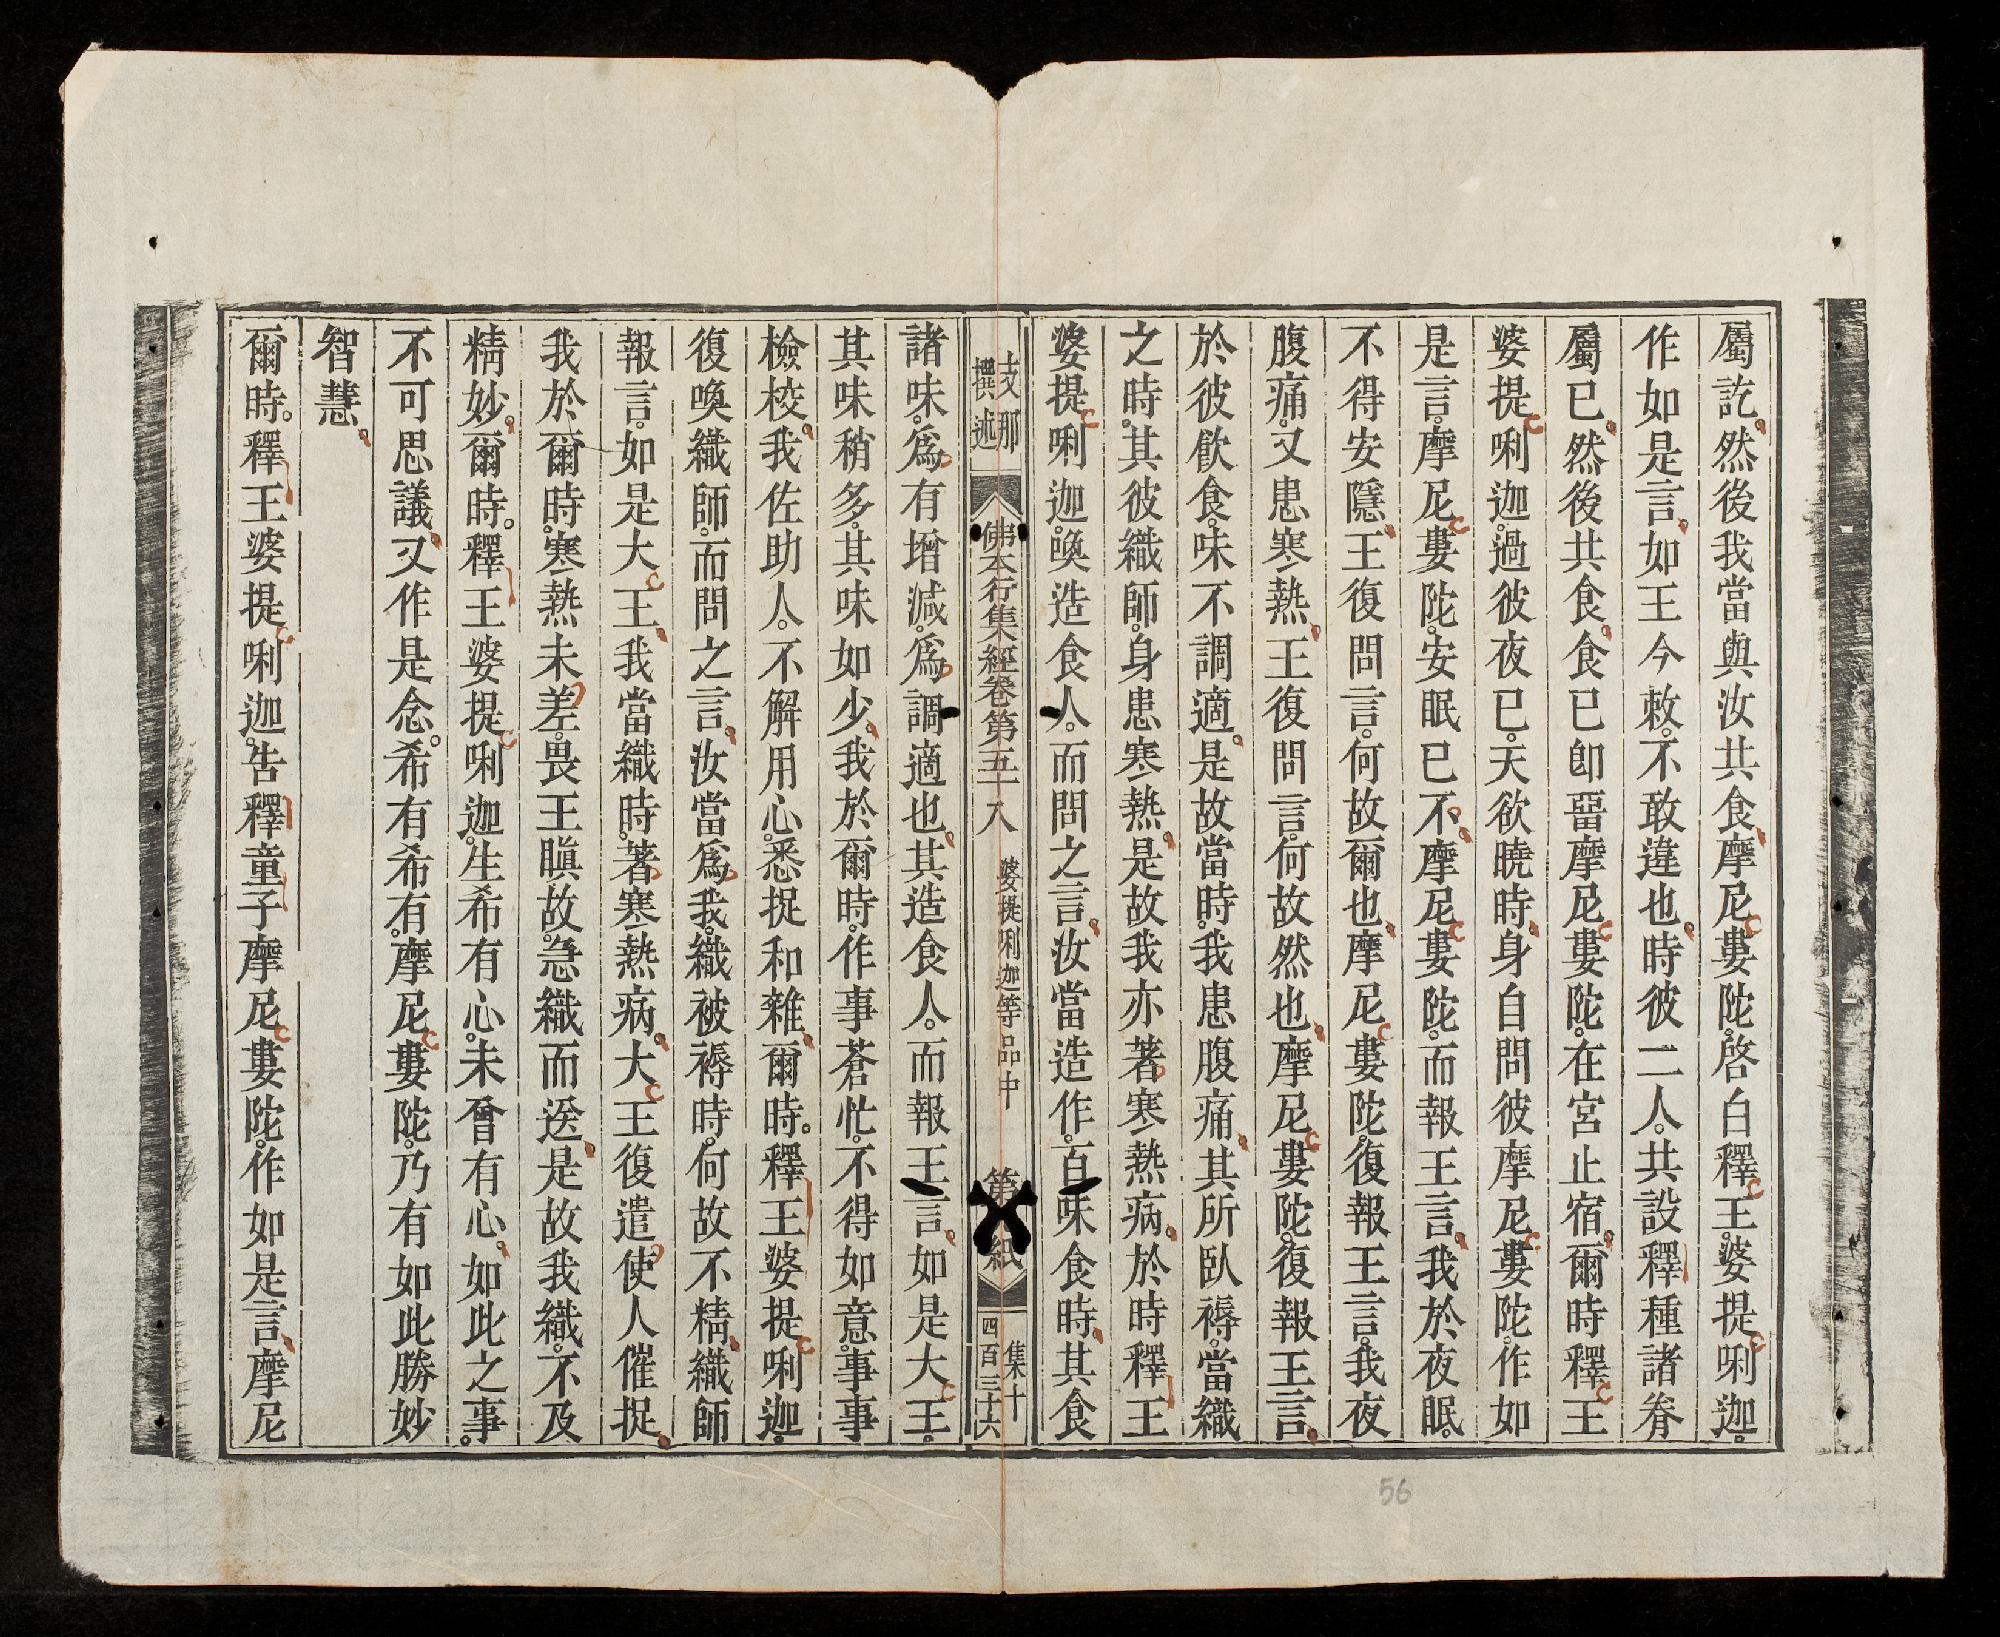 屬訖。然後我當與汝共食。摩尼婁陀。啓白釋王。婆提唎迦。
作如是言。如王今敕。不敢違也。時彼二人。共設釋種諸眷
屬已。然後共食。食已卽畱摩尼婁陀。在宮止宿。爾時釋王
婆提唎迦。過彼夜已。天欲曉時。身自問彼摩尼婁陀。作如
是言。摩尼婁陀。安眠已不。摩尼婁陀。而報王言。我於夜眠。
不得安隱。王復問言。何故爾也。摩尼婁陀。復報王言。我夜
腹痛。又患寒熱。王復問言。何故然也。摩尼婁陀。復報王言。
於彼飲食。味不調適。是故當時。我患腹痛。其所臥褥。當織
之時。其彼織師。身患寒熱。是故我亦著寒熱病。於時釋王
婆提唎迦。喚造食人。而問之言。汝當造作。百味食時。其食
支那
撰述
佛本行集經卷第五十八
婆提唎迦等品中
第
紙
集十
四百三十六
諸味。爲有增減。爲調適也。其造食人。而報王言。如是大王。
其味稍多。其味如少。我於爾時。作事蒼忙。不得如意。事事
檢校。我佐助人。不解用心。悉捉和雜。爾時。釋王婆提唎迦。
復喚織師。而問之言。汝當爲我。織被褥時。何故不精。織師
報言。如是大王。我當織時。著寒熱病。大王復遣使人催捉。
我於爾時。寒熱未差。畏王瞋故。急織而送。是故我織。不及
精妙。爾時。釋王婆提唎迦。生希有心。未曾有心。如此之事。
不可思議。又作是念。希有希有。摩尼婁陀。乃有如此勝妙
智慧。
爾時。釋王婆提唎迦。告釋童子摩尼婁陀。作如是言。摩尼
56